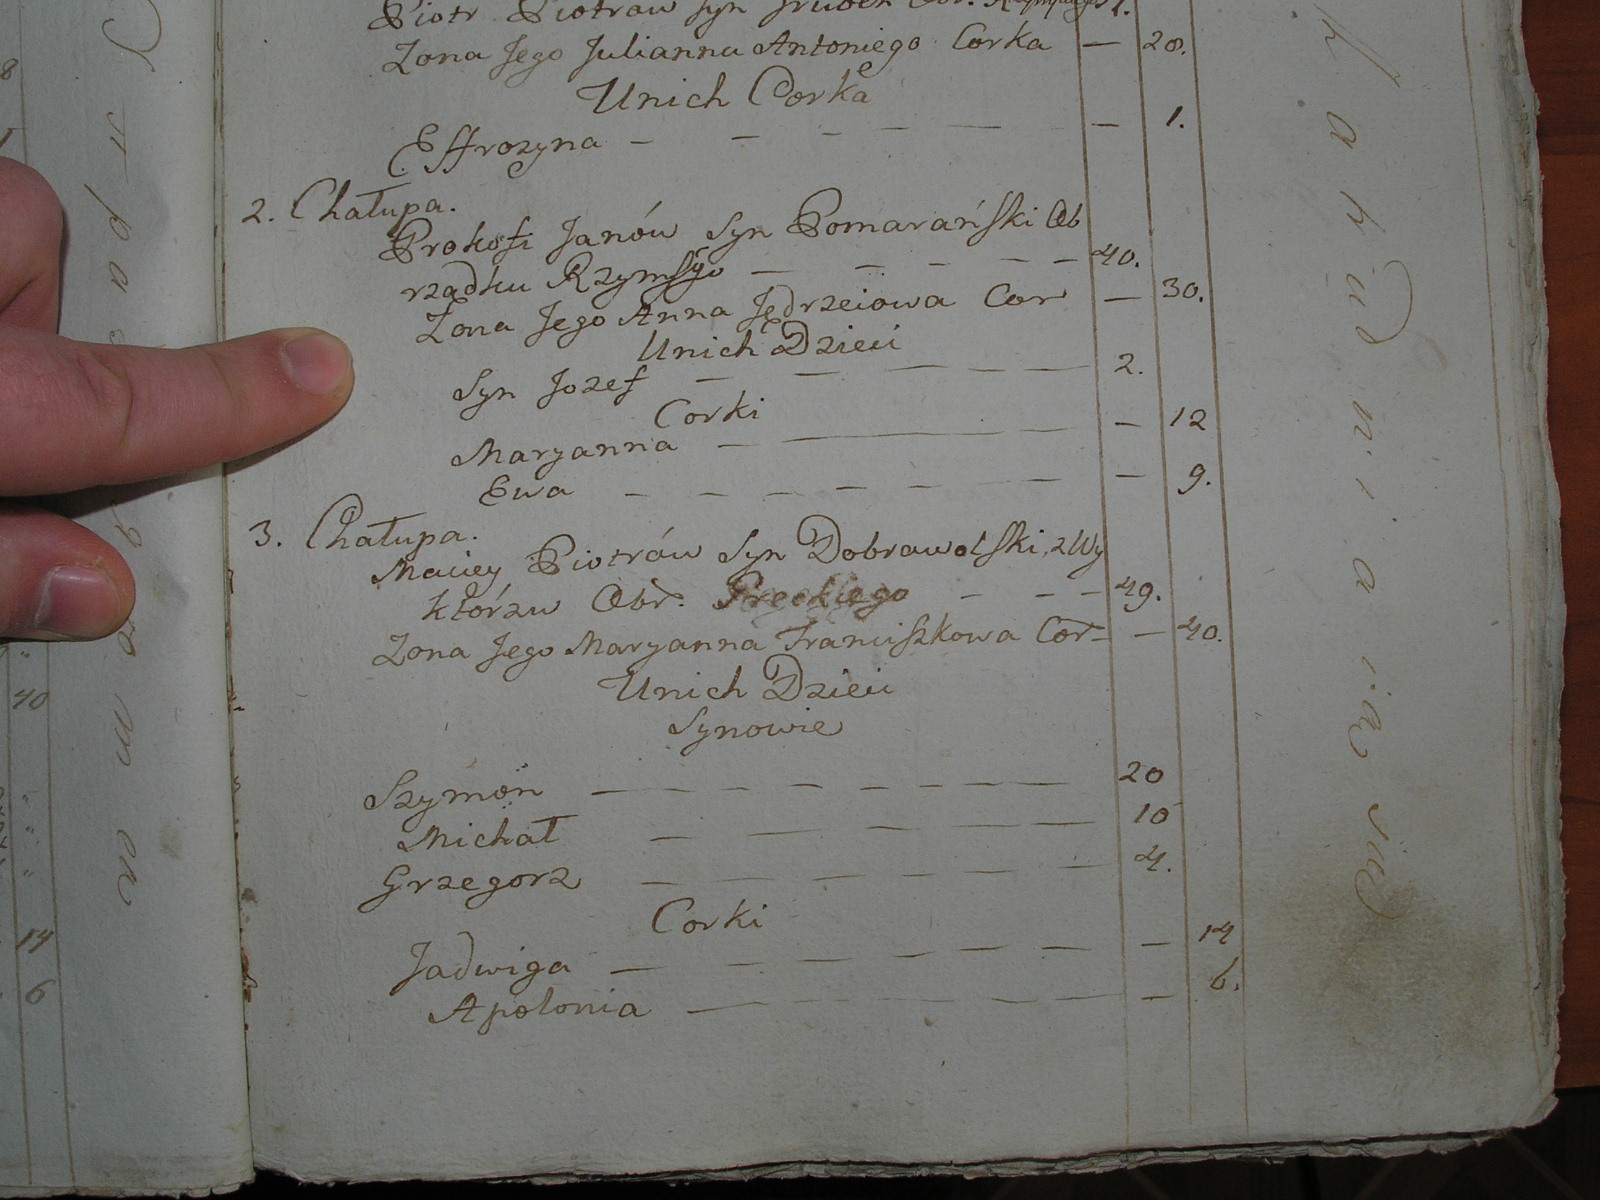 Piotr Piotrow Syn
Zona Jego Julianna Antoniego Corka — 28.
Unich Corka
Effrozyna — 1.
2. Chałupa.
Prokofi Janów Syn Pomarański Ob
rządku Rzymsgo — 40.
Zona Jego Anna Jędrzeiowa Cor — 30.
Unich Dzieci
Syn Jozef — 2.
Corki
Maryanna — 12
Ewa — 9.
3. Chałupa.
Maciey Piotrów Syn Dobrawolski, z Wy
którzu Obr. Greckiego — 49.
Zona Jego Maryanna Franciszkowa Cor — 40.
Unich Dzieci
Synowie
Szymon — 20
Michał — 10
Grzegorz — 4.
Corki
Jadwiga — 14
Apolonia — 6.
8
1
40
14
6